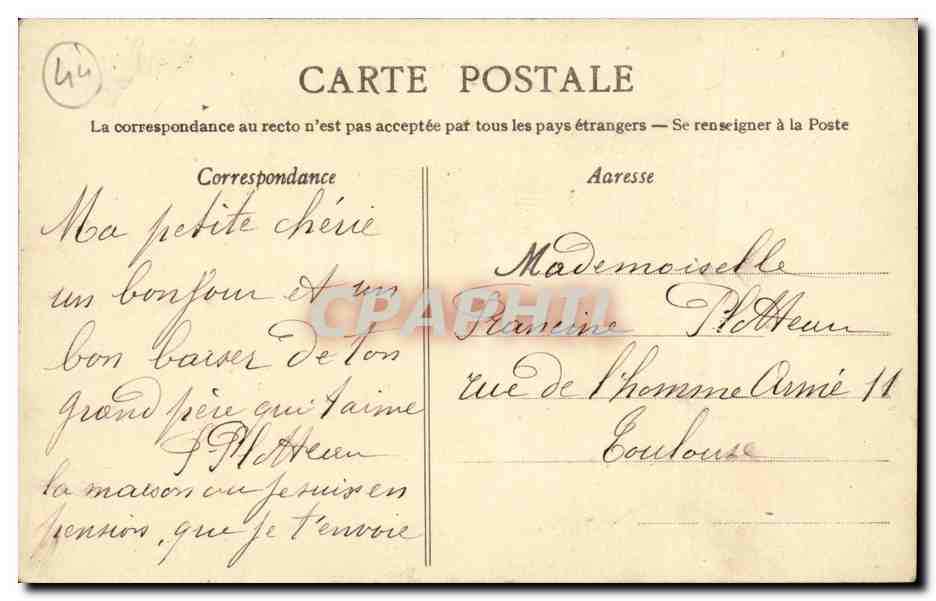 44
CARTE POSTALE
La correspondance au recto n'est pas acceptée par tous les pays étrangers — Se renseigner à la Poste
Correspondance
Ma petite chérie
un bonjour et un
bon baiser de ton
grand père qui t'aime
P Plotteau
la maison ou je suis en
pension, que je t'envoie
Adresse
Mademoiselle
Francine Plotteau
rue de l'homme Armé 11
Toulouse
CPAPHIL